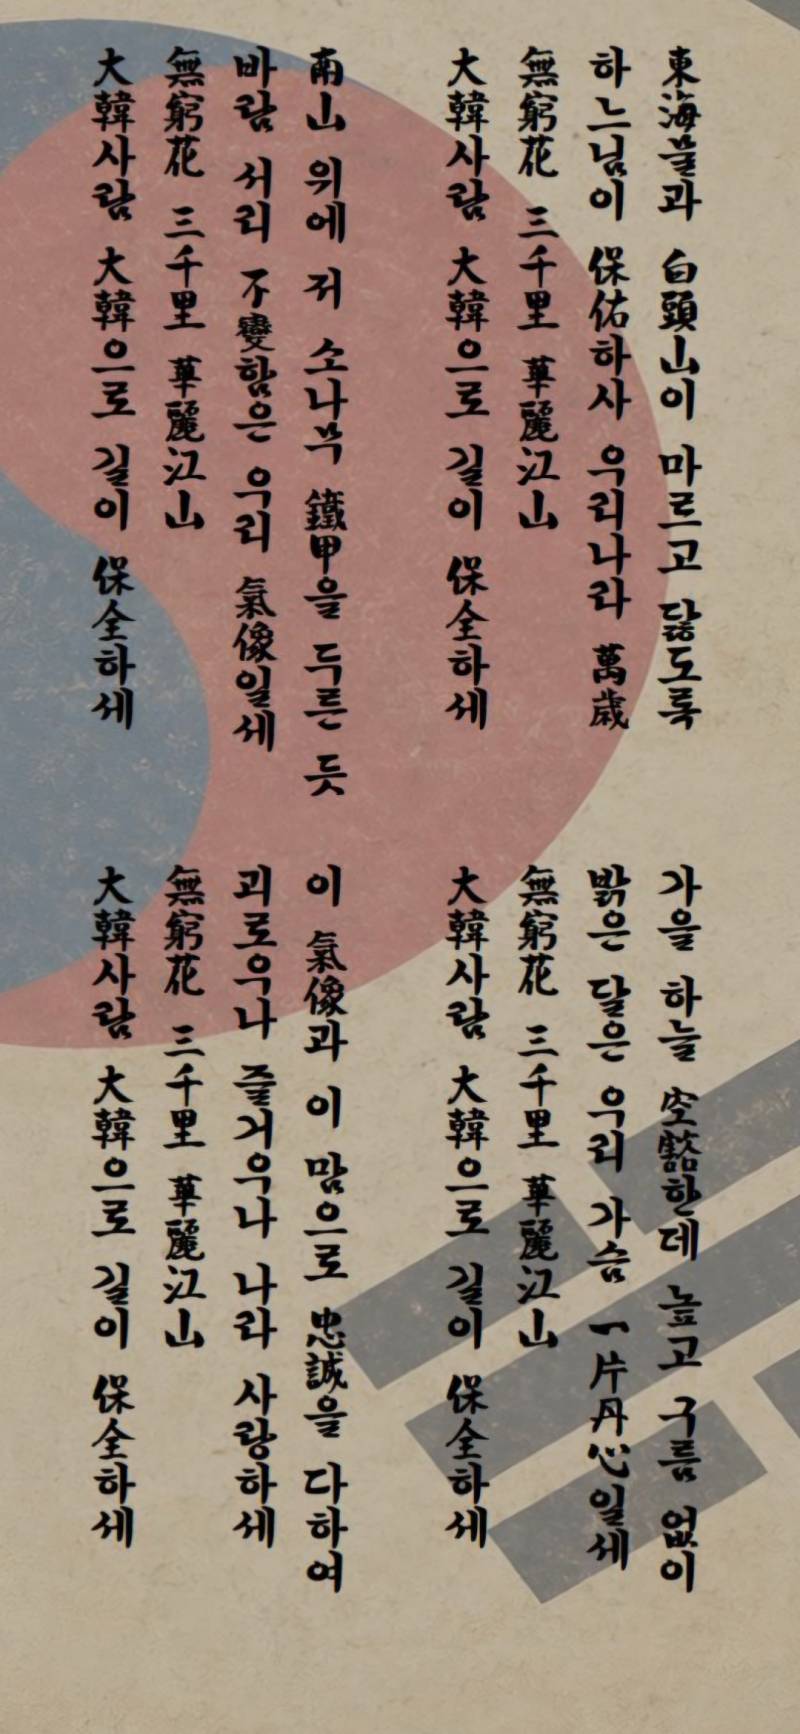 東海물과 白頭山이 마르고 닳도록
하느님이 保佑하사 우리나라 萬歲
無窮花 三千里 華麗江山
大韓사람 大韓으로 길이 保全하세
南山 위에 저 소나무 鐵甲을 두른 듯
바람 서리 不變함은 우리 氣像일세
無窮花 三千里 華麗江山
大韓사람 大韓으로 길이 保全하세
가을 하늘 空豁한데 높고 구름 없이
밝은 달은 우리 가슴 一片丹心일세
無窮花 三千里 華麗江山
大韓사람 大韓으로 길이 保全하세
이 氣像과 이 맘으로 忠誠을 다하여
괴로우나 즐거우나 나라 사랑하세
無窮花 三千里 華麗江山
大韓사람 大韓으로 길이 保全하세